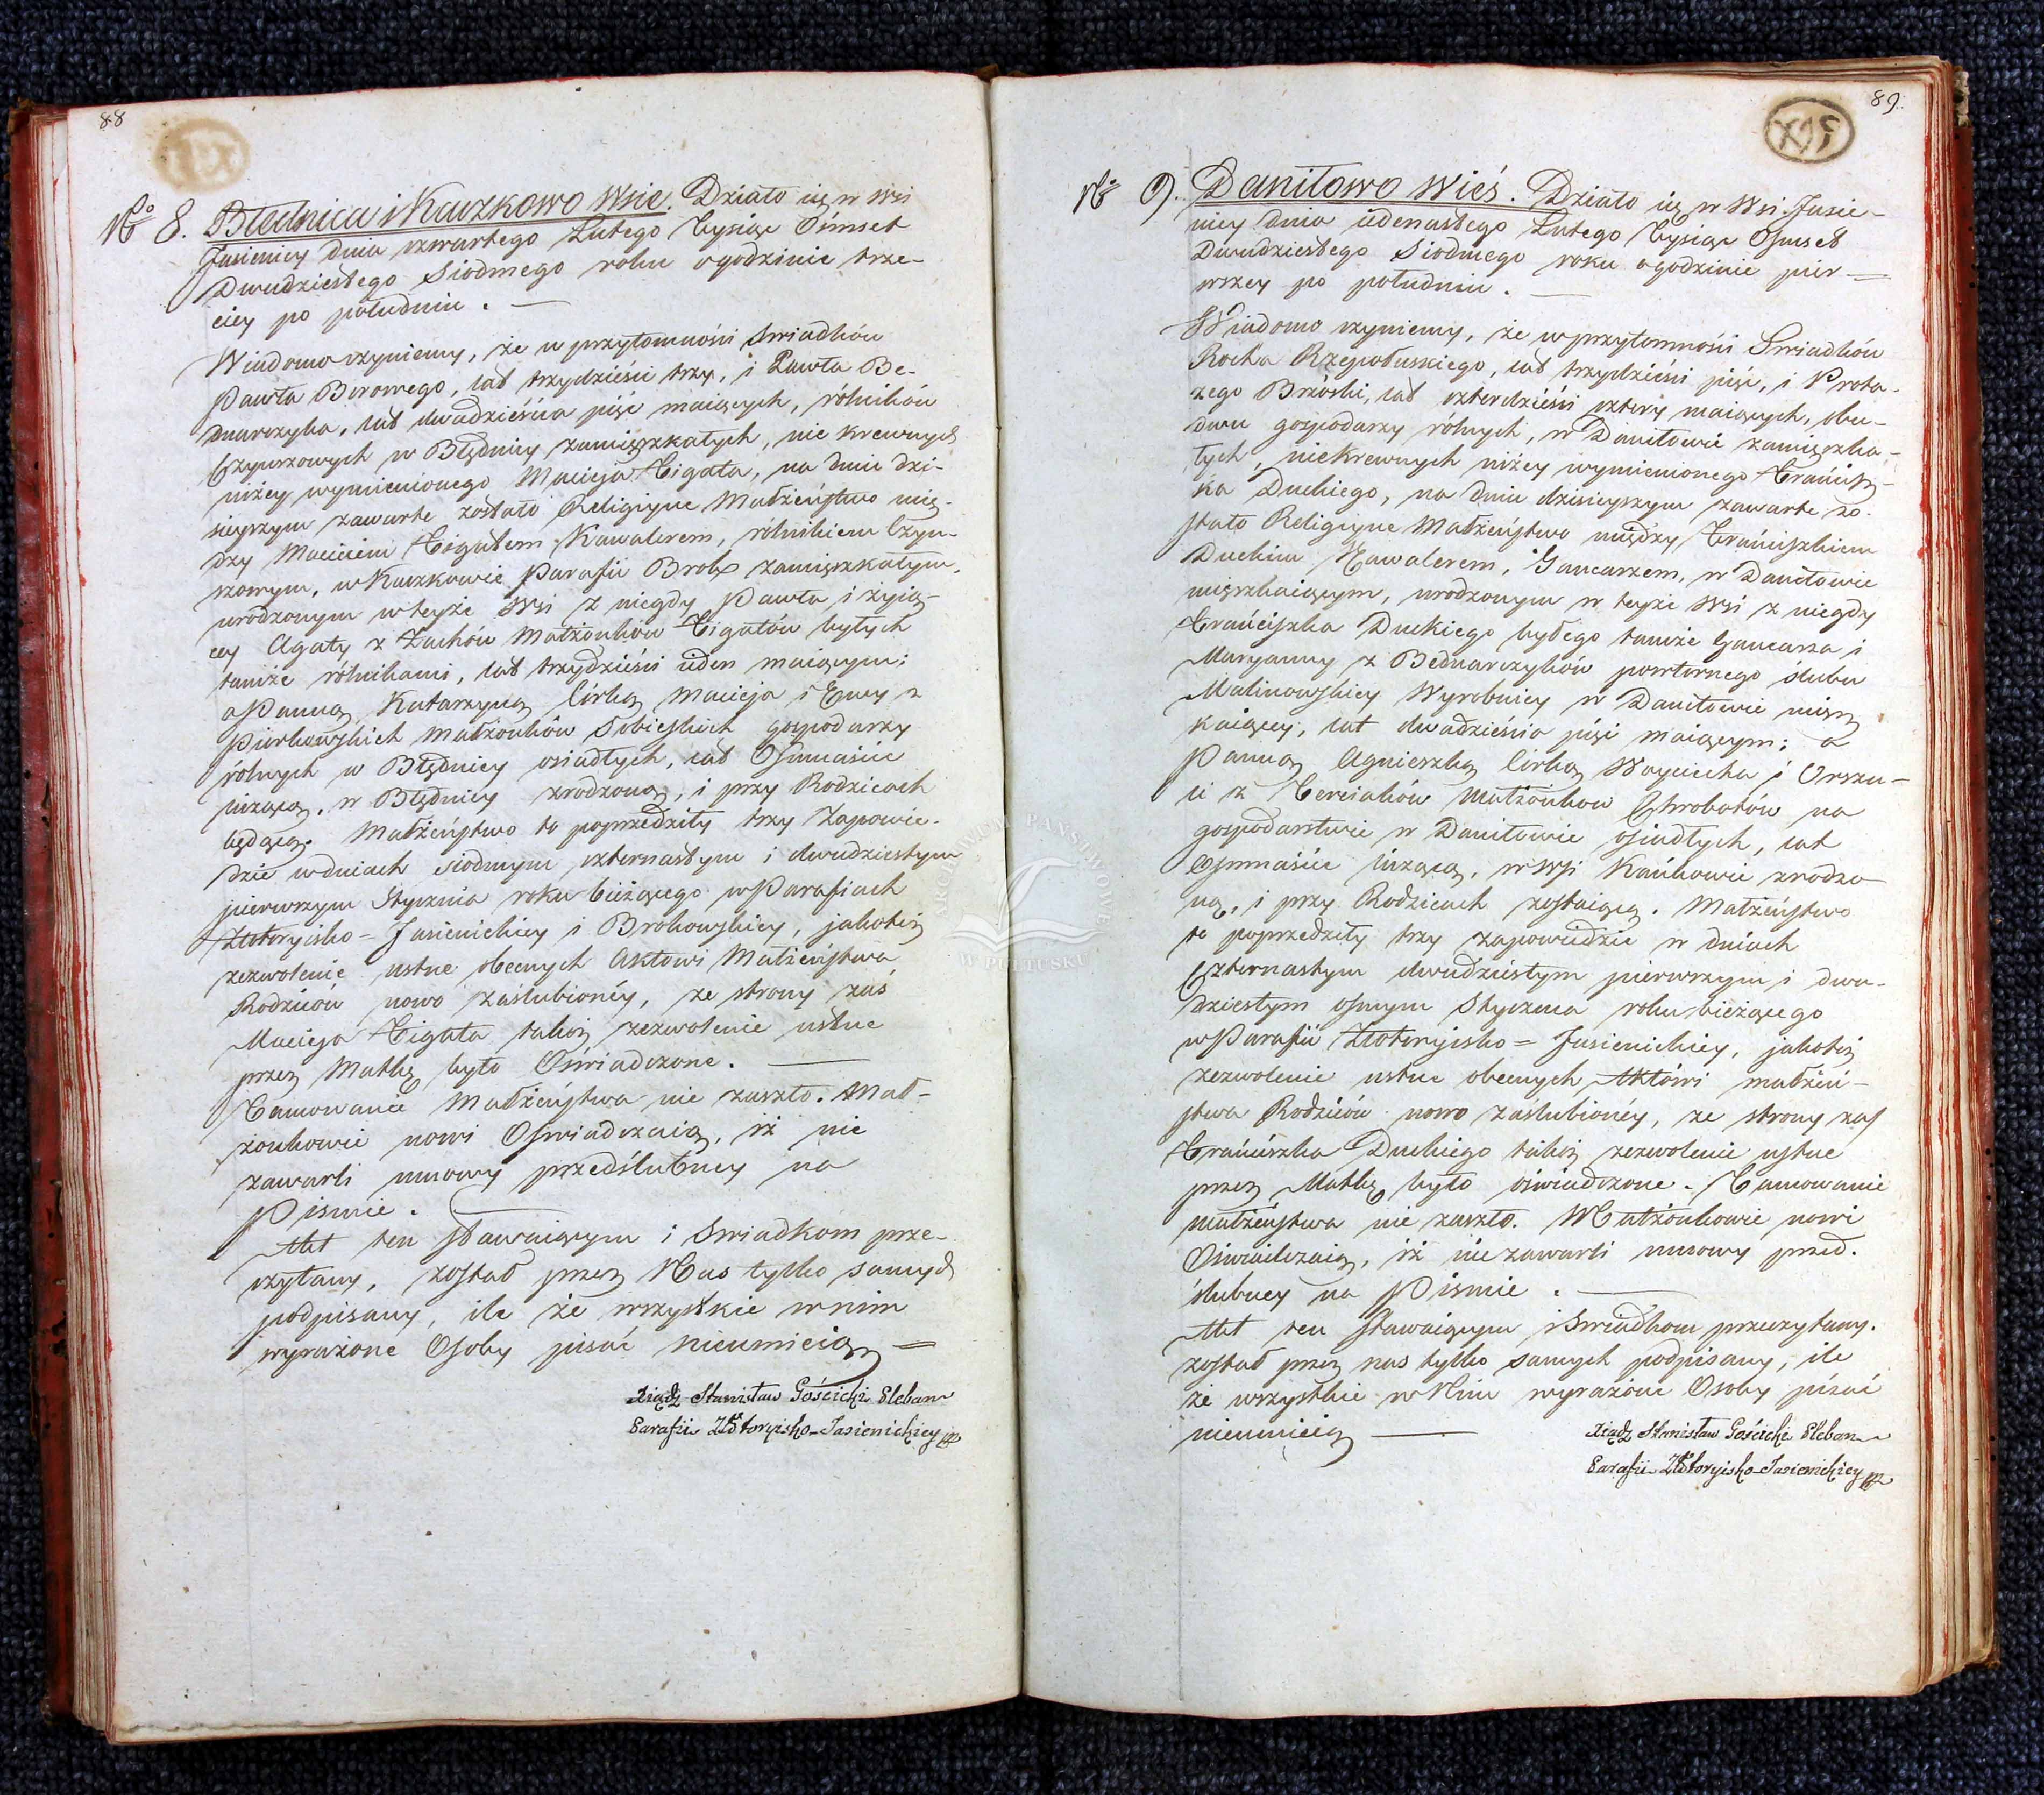 88
No 8. Błędnica i Kaczkowo Wsie. Działo się w Wsi
Jasienicy dnia czwartego Lutego Tysiąc Ośmset
Dwudziestego Siodmego roku o godzinie trze-
ciey po południu. —
Wiadomo czyniemy, że w przytomności Swiadków
Pawła Borowego, lat trzydzieści trzy, i Pawła Be-
dnarczyka, lat dwadzieścia pięć maiących, rólników
Czynszowych w Błędnicy zamięszkałych, nie krewnych
niżey wymienionego Macieja Figata, na dniu dzi-
sieyszym zawarte zostało Religiyne Małżeństwo mię-
dzy Maciciem Figatem Kawalerem, rólnikiem Czyn-
szowym, w Kaczkowie Parafii Brok zamięszkałym,
urodzonym w teyże Wsi z niegdy Pawła i żyią-
cey Agaty z Zachów Małżonków Figatów byłych
tamże rólnikami, lat trzydzieści ieden maiącym;
a Panną Katarzyną Córką Macieja i Ewy z
Piorkowskich Małżonków Sobieskich gospodarzy
rólnych w Błędnicy osiadłych, lat Osmnaście
liczącą, w Błędnicy zrodzoną, i przy Rodzicach
będącą. Małżeństwo to poprzedziły trzy Zapowie-
dzie w dniach siodmym czternastym i dwudziestym
pierwszym Stycznia roku bieżącego w Parafiach
Złotoryisko=Jasienickiey i Brokowskiey, jakoteż
zezwolenie ustne obecnych Aktowi Małżeństwa
Rodziców nowo zaślubionéy, ze strony zaś
Macieja Figata takoż zezwolenie ustne
przez Matkę było Oświadczone. —
Tamowanie Małżeństwa nie zaszło. Mał-
żonkowie nowi Oswiadczaią, iż nie
zawarli umowy przedślubney na
Pismie. —
Akt ten stawaiącym i Swiadkom prze-
czytany, został przez Nas tylko samych
podpisany, ile że wszystkie w nim
wyrażone Osoby pisać nieumieią —
Xiądz Stanisław Gościcki Pleban
Parafii Złotoryisko-Jasienickiey mp
89.
No 9. Daniłowo Wieś. Działo się w Wsi Jasie-
nicy dnia iedenastego Lutego Tysiąc Osmset
Dwudziestego Siodmego roku o godzinie pier-
wszey po południu. —
Wiadomo czyniemy, że w przytomności Swiadków
Rocha Rzepołuskiego, lat trzydzieści pięć, i Prota-
zego Brzóski, lat czterdzieści cztery maiących, obu-
dwu gospodarzy rólnych, w Daniłowie zamięszka-
łych, niekrewnych niżey wymienionego Frańcisz-
ka Duckiego, na dniu dzisieyszym zawarte zo-
stało Religiyne Małżeństwo między Frańciszkiem
Duckim Kawalerem, Gancarzem, w Daniłowie
mięszkaiącym, urodzonym w teyże Wsi z niegdy
Frańciszka Duckiego byłego tamże Gancarza i
Maryanny z Bednarczyków powtornego ślubu
Malinowskiey Wyrobnicy w Daniłowie mięsz
kaiącey, lat dwadzieścia pięć maiącym; a
Panną Agnieszką Córką Woyciecha i Urszu-
li z Jerciaków Małżonkow Chrobotów na
gospodarstwie w Daniłowie osiadłych, lat
Osmnaście liczącą, w Wsi Kańkowie zrodzo-
ną, i przy Rodzicach zostaiącą. Małżeństwo
to poprzedziły trzy zapowiedzie w dniach
Czternastym dwudziestym pierwszym i dwu-
dziestym osmym Stycznia roku bieżącego
w Parafii Złotoryisko=Jasienickiey, jakoteż
zezwolenie ustne obecnych Aktówi małżeń-
stwa Rodziców nowo zaślubionéy, ze strony zas
Frańciszka Duckiego takoż zezwolenie ustne
przez Matkę było oświadczone. Tamowanie
małżeństwa nie zaszło. Małżonkowie nowi
Oświadczaią, iż nie zawarli umowy przed-
ślubney na Pismie. —
Akt ten stawaiącym i Swiadkom przeczytany.
został przez nas tylko samych podpisany, ile
że wszystkie w Nim wyrażone Osoby pisać
nieumieią —
Xiądz Stanisław Gościcki Pleban
Parafii Złotoryisko-Jasienickiey mp
ARCHIWUM PAŃSTWOWE
W PUŁTUSKU